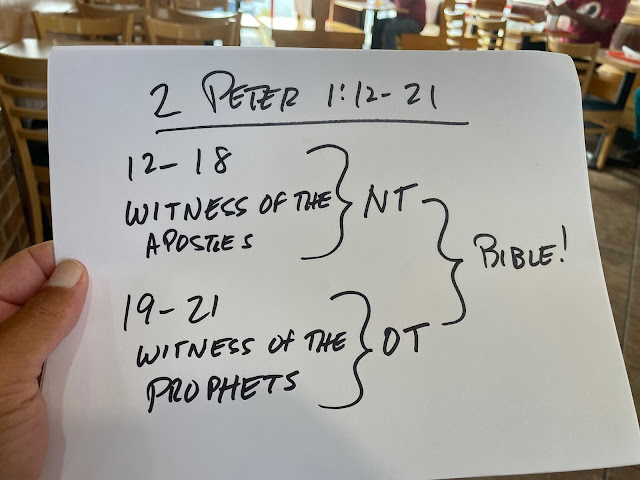 2 PETER 1:12-21
12-18
WITNESS OF THE
APOSTLES
NT
19-21
WITNESS OF THE
PROPHETS
OT
BIBLE!